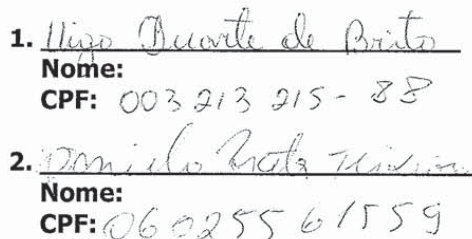 1. Higo Duarte de Brito
Nome:
CPF: 003 213 215 - 88
2. Danielo
Nome:
CPF: 060255 61559